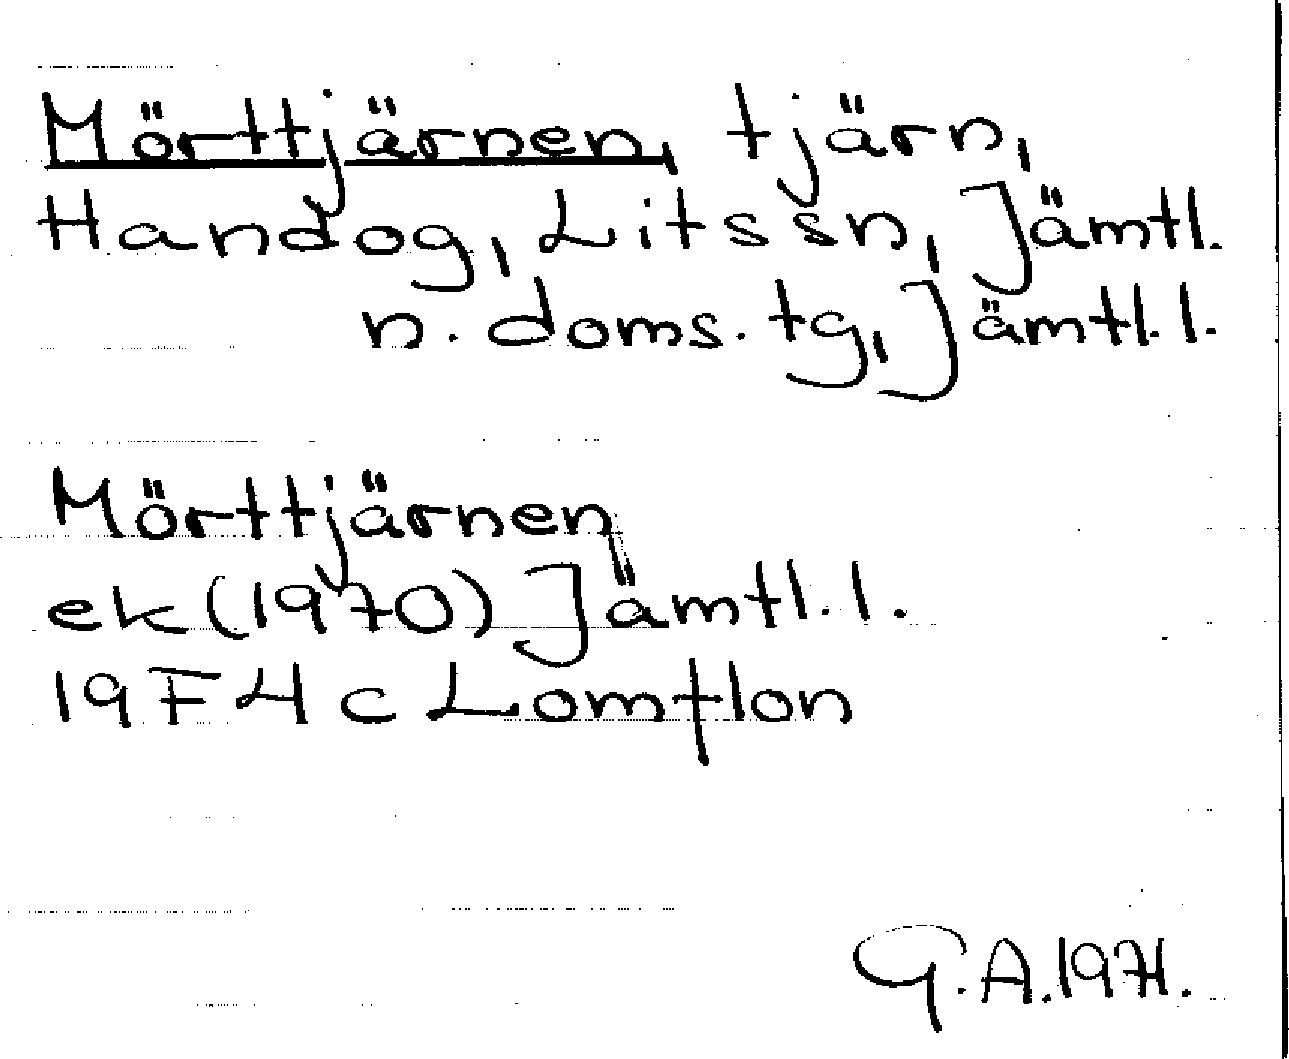 Mörttjärnen, tjärn,
Handog, Lits sn, Jämtl.
n. doms. tg, Jämtl. l.
Mörttjärnen
ek (1970) Jämtl. l.
19F4c Lomtlon
G. A. 1971.